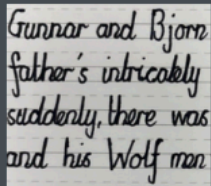 Gunnar and Bjorn
father's intricately
suddenly, there was
and his Wolf men